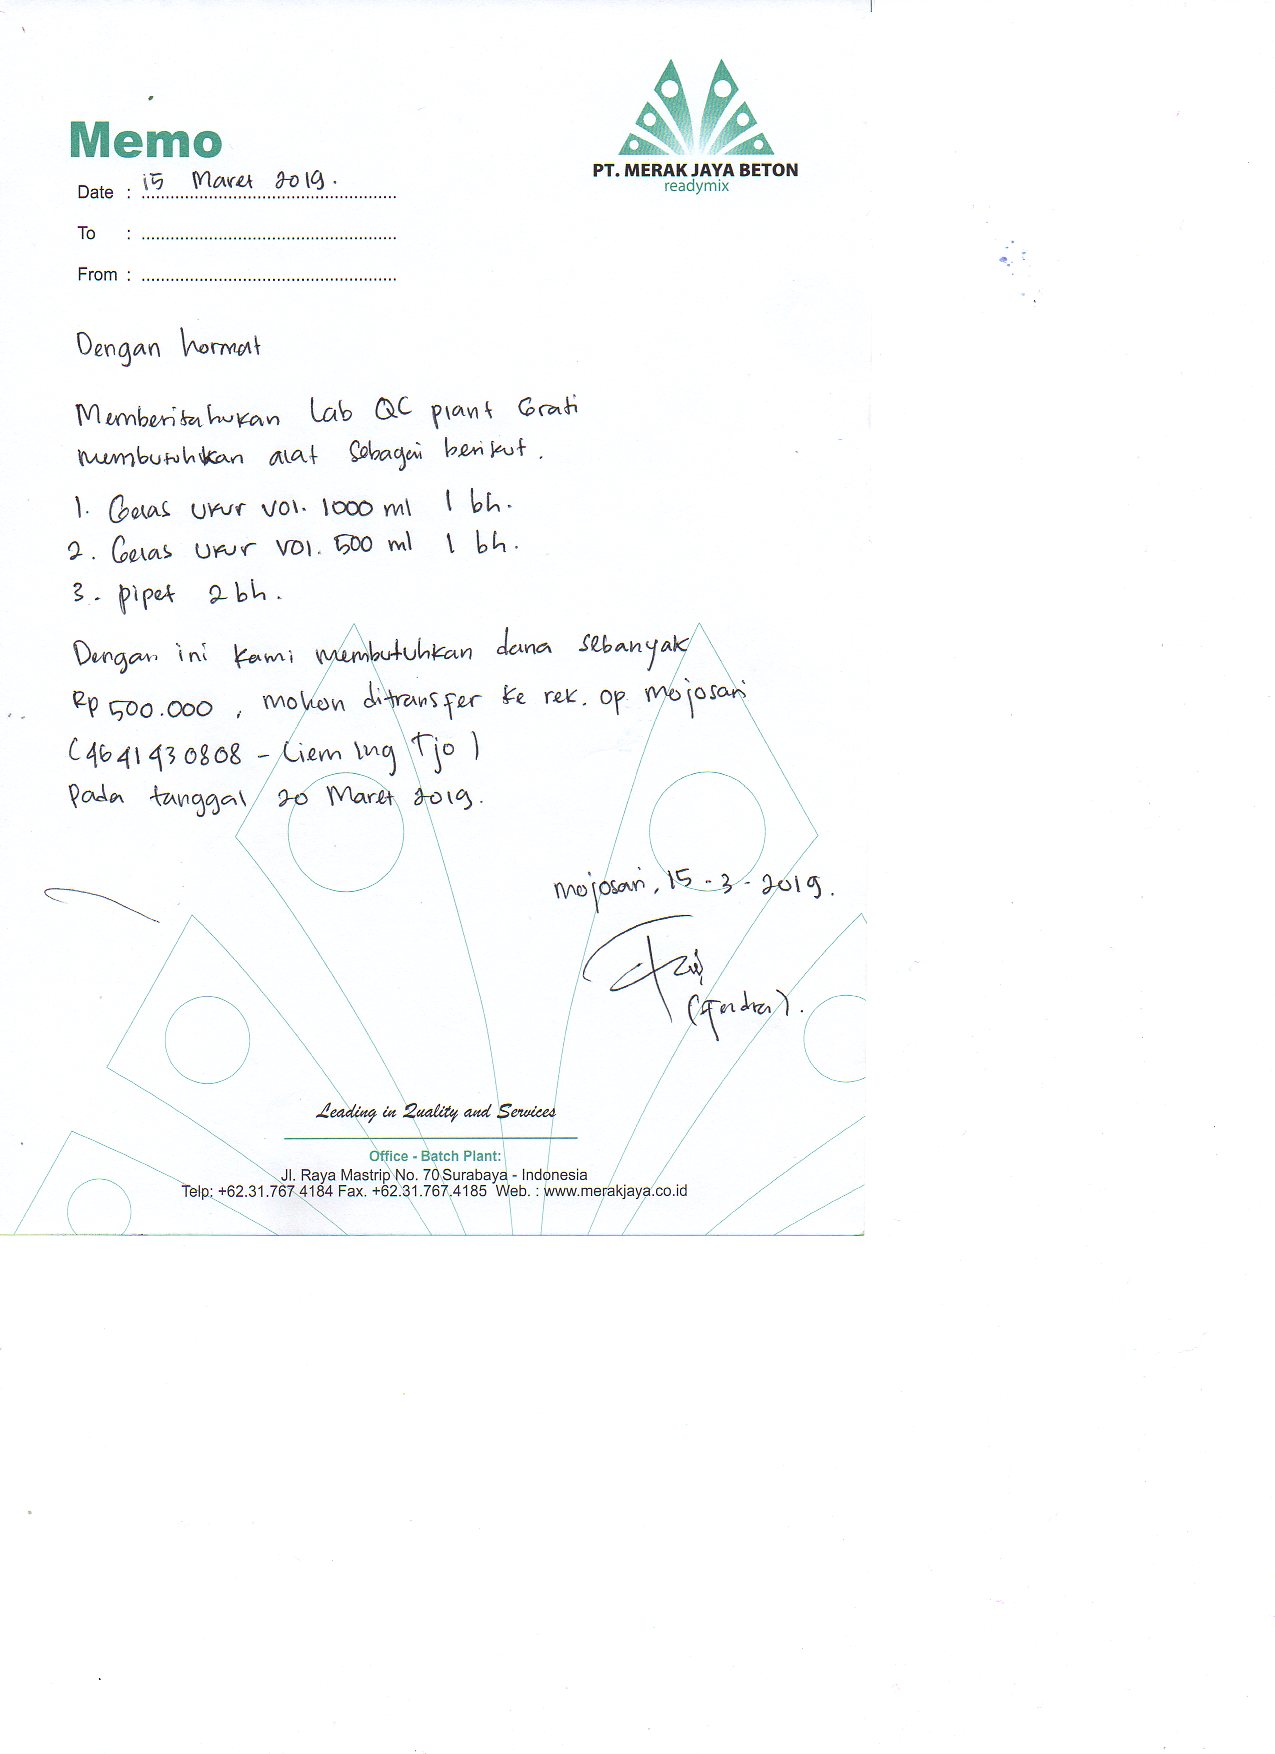 Memo
PT. MERAK JAYA BETON
readymix
Date : 15 Maret 2019.
To :
From :
Dengan hormat
Memberitahukan Lab QC plant Grati
membutuhkan alat sebagai berikut.
1. Gelas ukur vol. 1000 ml 1 bh.
2. Gelas ukur vol. 500 ml 1 bh.
3. pipet 2 bh.
Dengan ini kami membutuhkan dana sebanyak
Rp 500.000, mohon ditransfer ke rek. op mojosari
(4641430808 - Liem Ing Tjo)
Pada tanggal 20 Maret 2019.
mojosari, 15-3-2019.
Leading in Quality and Services
Office - Batch Plant:
Jl. Raya Mastrip No. 70 Surabaya - Indonesia
Telp: +62.31.767 4184 Fax. +62.31.767.4185 Web. : www.merakjaya.co.id